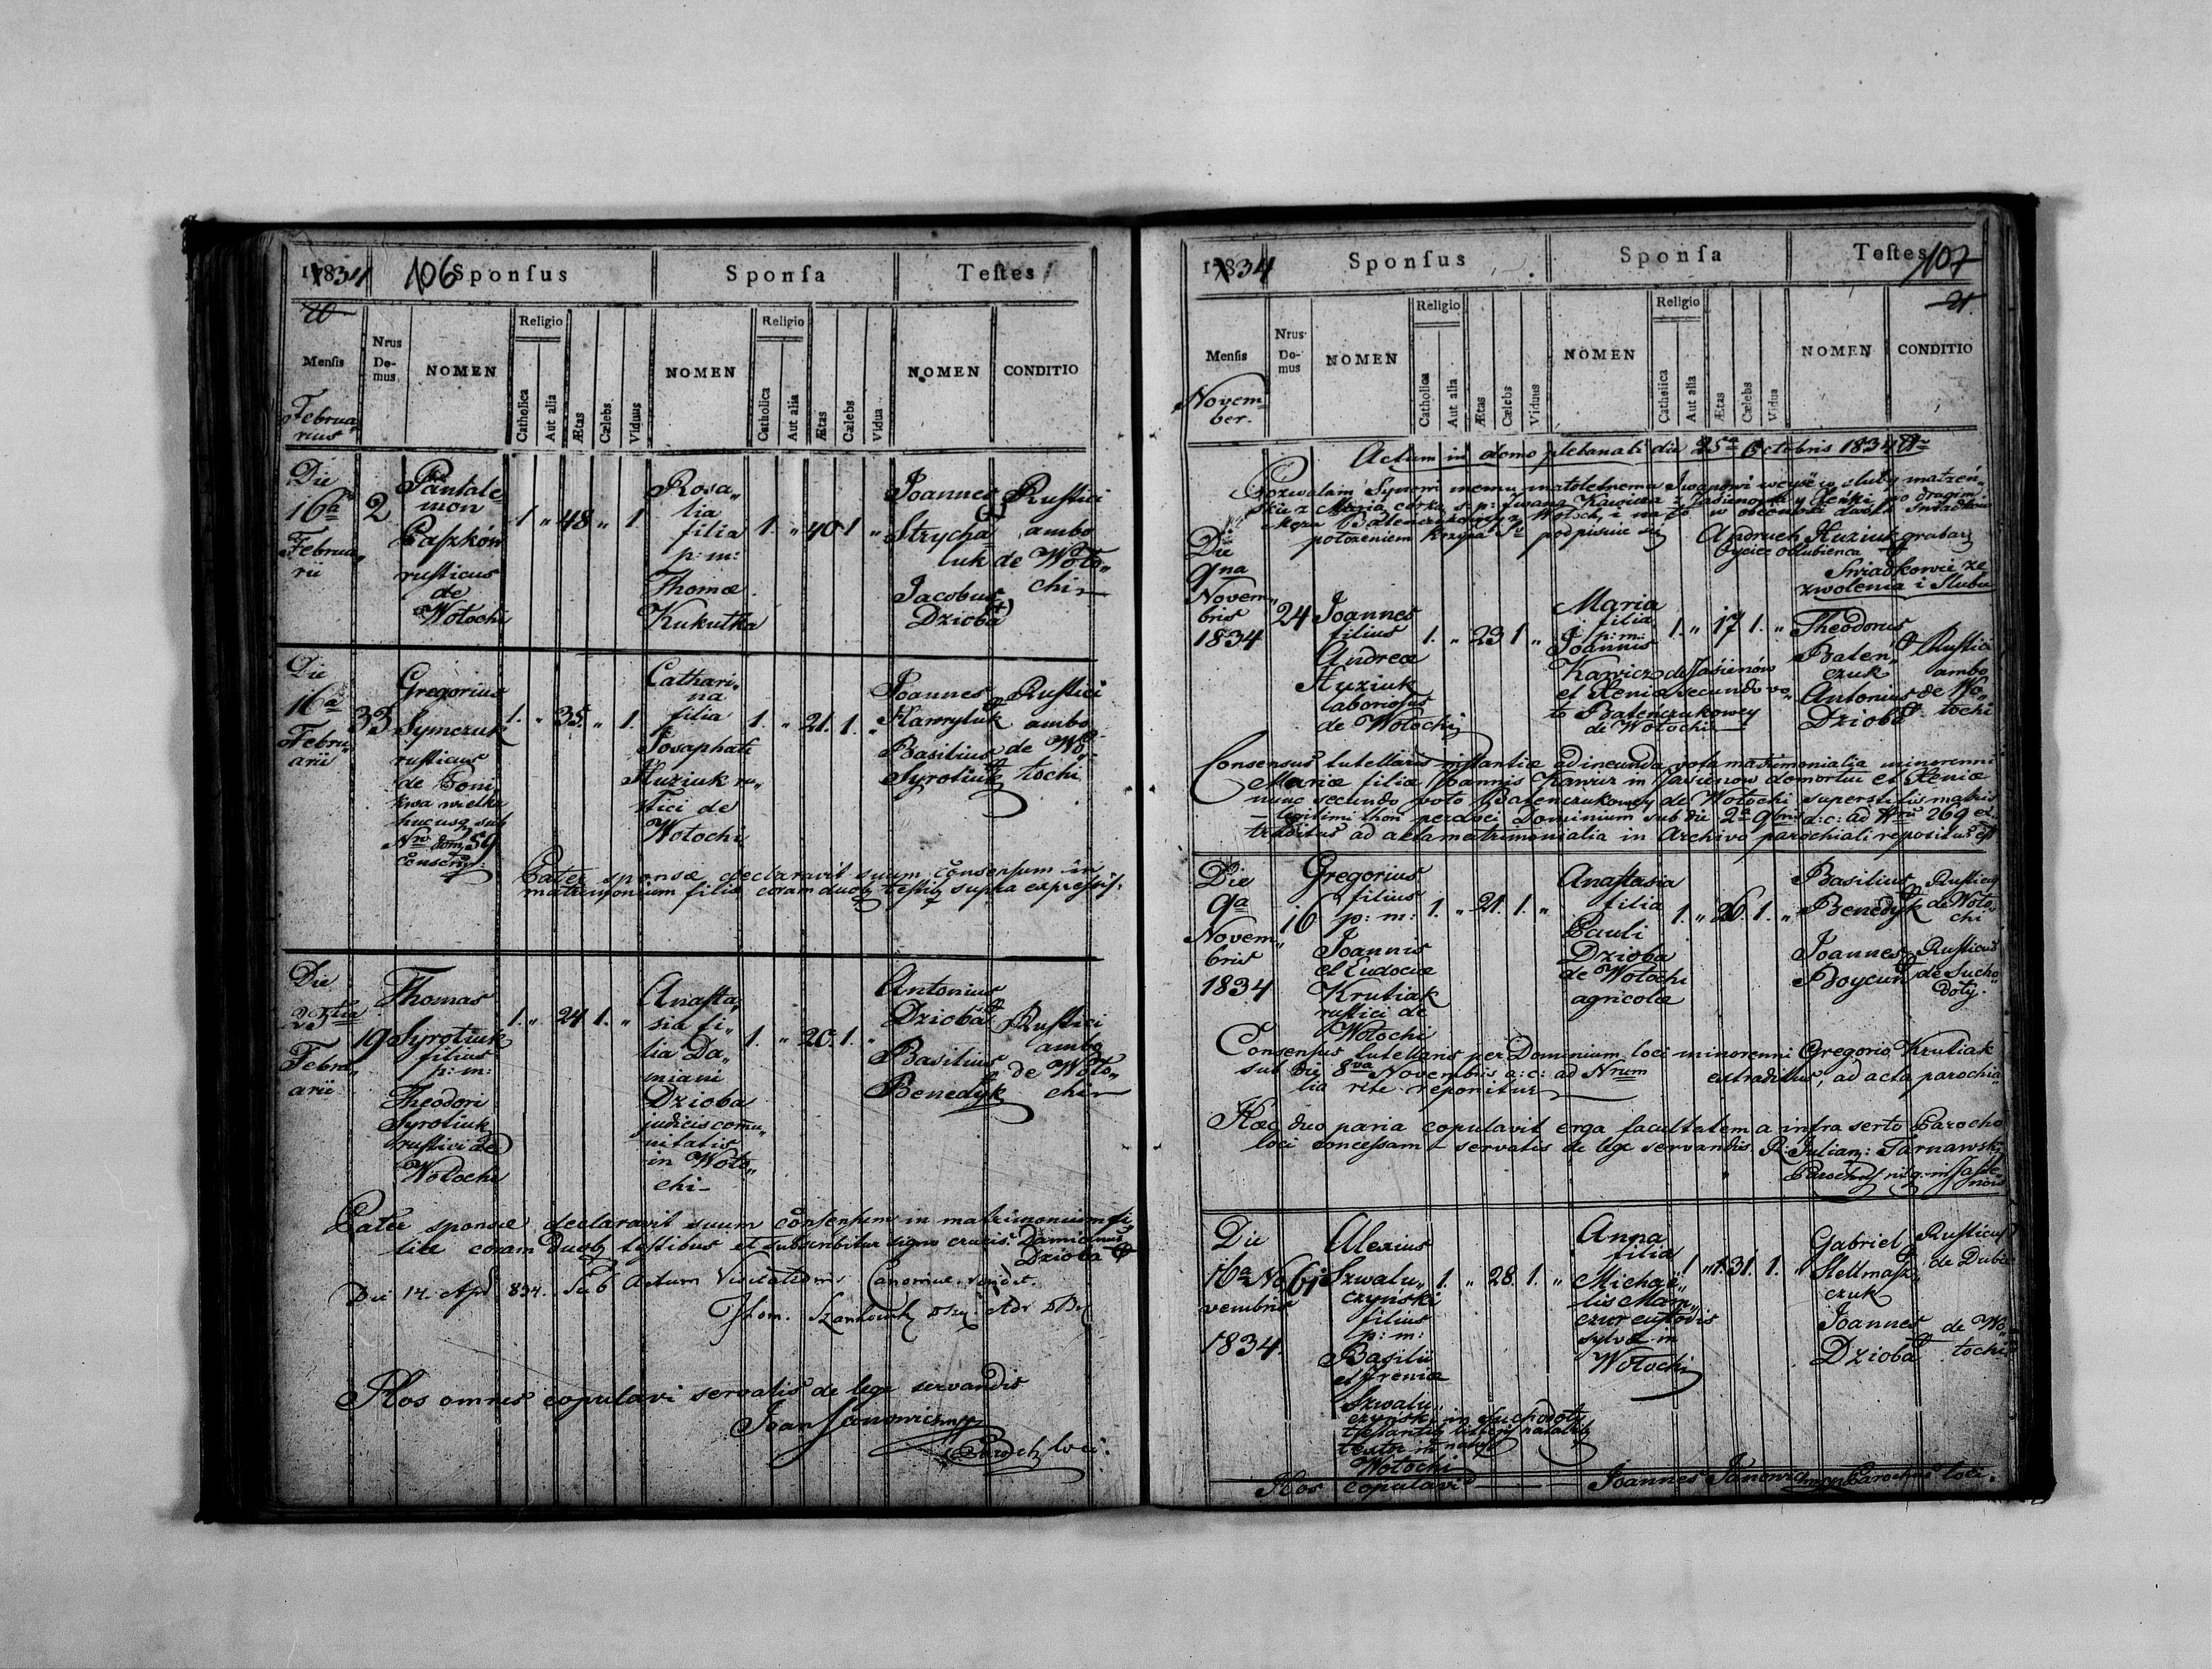 1834 106 Sponsus Sponsa Testes
Mensis Nrus Domus NOMEN Religio Catholica Aut alia Ætas Cælebs Viduus NOMEN Religio Catholica Aut alia Ætas Cælebs Vidua NOMEN CONDITIO
Februa„
rius
Die
16ta
Februa„
rii
2
Pantale
mon
Paszków
rusticus
de
Wołochi
1 „ 48 „ 1
Rosa„
lia
filia
p: m:
Thomæ
Kukułka
1. „ 40 1 „
Joannes
Strycha
luk
Jacobus
Dzioba
Rustici
ambo
de Woło„
chi
Die
16ta
Febru„
arii
33
Gregorius
Symczuk
rusticus
de Poni„
kwa wielka
hucusq sub
Nro dom 59
conscrip:
1. „ 35 „ 1.
Cathari„
na
filia
Josaphati
Huziuk ru„
stici de
Wołochi
1. „ 21. 1. „
Joannes
Hawryluk
Basilius
Syrotiuk
Rustici
ambo
de Wo„
łochi
Pater sponsæ declaravit suum consensum in
matrimonium filiæ coram duobq testibq supra expressis.
Die
25tia
Febru„
arii
19
Thomas
Syrotiuk
filius
p: m:
Theodori
Syrotiuk
rustici de
Wołochi
1. „ 24 1. „
Anasta„
sia fi„
lia Da„
miani
Dzioba
judicis comu„
nitatis
in Woło„
chi
1. „ 20. 1. „
Antonius
Dzioba
Basilius
Benedyk
Rustici
ambo
de Woło„
chi
Pater sponsæ declaravit suum consensum in matrimonium fi„
liæ coram duobq testibus et subscribitur signo crucis. Damianus
Dzioba
Die 14. Apl 834. Sub Actum Visitationis Canonicæ
Thom.
Hos omnes copulavi servatis de lege servandis
Joan Janowicz mpp
Paroch loci.
1834 Sponsus Sponsa Testes 107
21.
Mensis Nrus Domus NOMEN Religio Catholica Aut alia Ætas Cælebs Viduus NOMEN Religio Catholica Aut alia Ætas Cælebs Vidua NOMEN CONDITIO
Novem„
ber.
Actum in domo plebanali die 25ta Octobris 1834
Pozwalam Synowi memu małoletnemu Iwanowi wejść w śluby małżeń„
skie z Maria, córką ś. p: Iwana Kawicza z Jasienowa y Xeńki po drugim
Mężu Baleńczukowey z Wołoch, i na to w obecności dwóch Świadków
położeniem Krzyża Sgo podpisuie się Andruch Huziuk grabarz
Oyciec oblubienca
Swiadkowie ze
zwolenia i Slubu
Die
9na
Novem„
bris
1834
24
Joannes
filius
Andreæ
Huziuk
laboriosus
de Wołochi
1. „ 23 1. „
Maria
filia
p: m:
Joannis
Kawicz de Jasienów
et Xenia secundo vo„
to Baleńczukowey
de Wołochi
1. „ 17 1. „
Theodorus
Baleń„
czuk
Antonius
Dzioba
Rustici
ambo
de Wo„
łochi
Consensus tutellaris instantiæ ad ineunda vota matrimonialia minorenni
Mariæ filiæ Joannis Kawicz in Jasienow demortui et Xeniæ
nunc secundo voto Baleńczukowey de Wołochi superstitis matris
legitimi thori per loci Dominium sub die 2a 9bris a: c: ad Nrum 269 ex
traditus ad acta matrimonialia in Archivo parochiali repositus est
Die
9a
Novem„
bris
1834
16
Gregorius
filius
p: m:
Joannis
et Eudociæ
Krutiak
rustici de
Wołochi
1. „ 21. 1. „
Anastasia
filia
Pauli
Dzioba
de Wołochi
agricolæ
1. „ 26. 1. „
Basilius
Benedyk
Joannes
Boycun
Rusticus
de Woło„
chi
Rusticus
de Sucho„
doły.
Consensus tutellaris per Dominium loci minorenni Gregorio Krutiak
sub die 8va Novembris a: c: ad Nrum extraditus, ad acta parochia„
lia rite reponitur
Hæc duo paria copulavit erga facultatem a infra serto Parocho
loci concessam servatis de lege servandis R: Julian: Tarnawski
Die
16a No
vembris
1834.
61
Alexius
Szwalu„
czyński
filius
p: m:
Basilii
et Ireniæ
Szwalu„
czyński in Suchodoły
Wołochi
1. „ 28. 1. „
Anna
filia
Michaë„
lis Mam„
czur custodis
sylvæ in
Wołochi
1 „ 31. 1. „
Gabriel
Stellmasz„
czuk
Joannes
Dzioba
Rusticus
de Dubie
de Wo„
łochi
Hos copulavi Joannes Janowicz mpp Parochus loci.